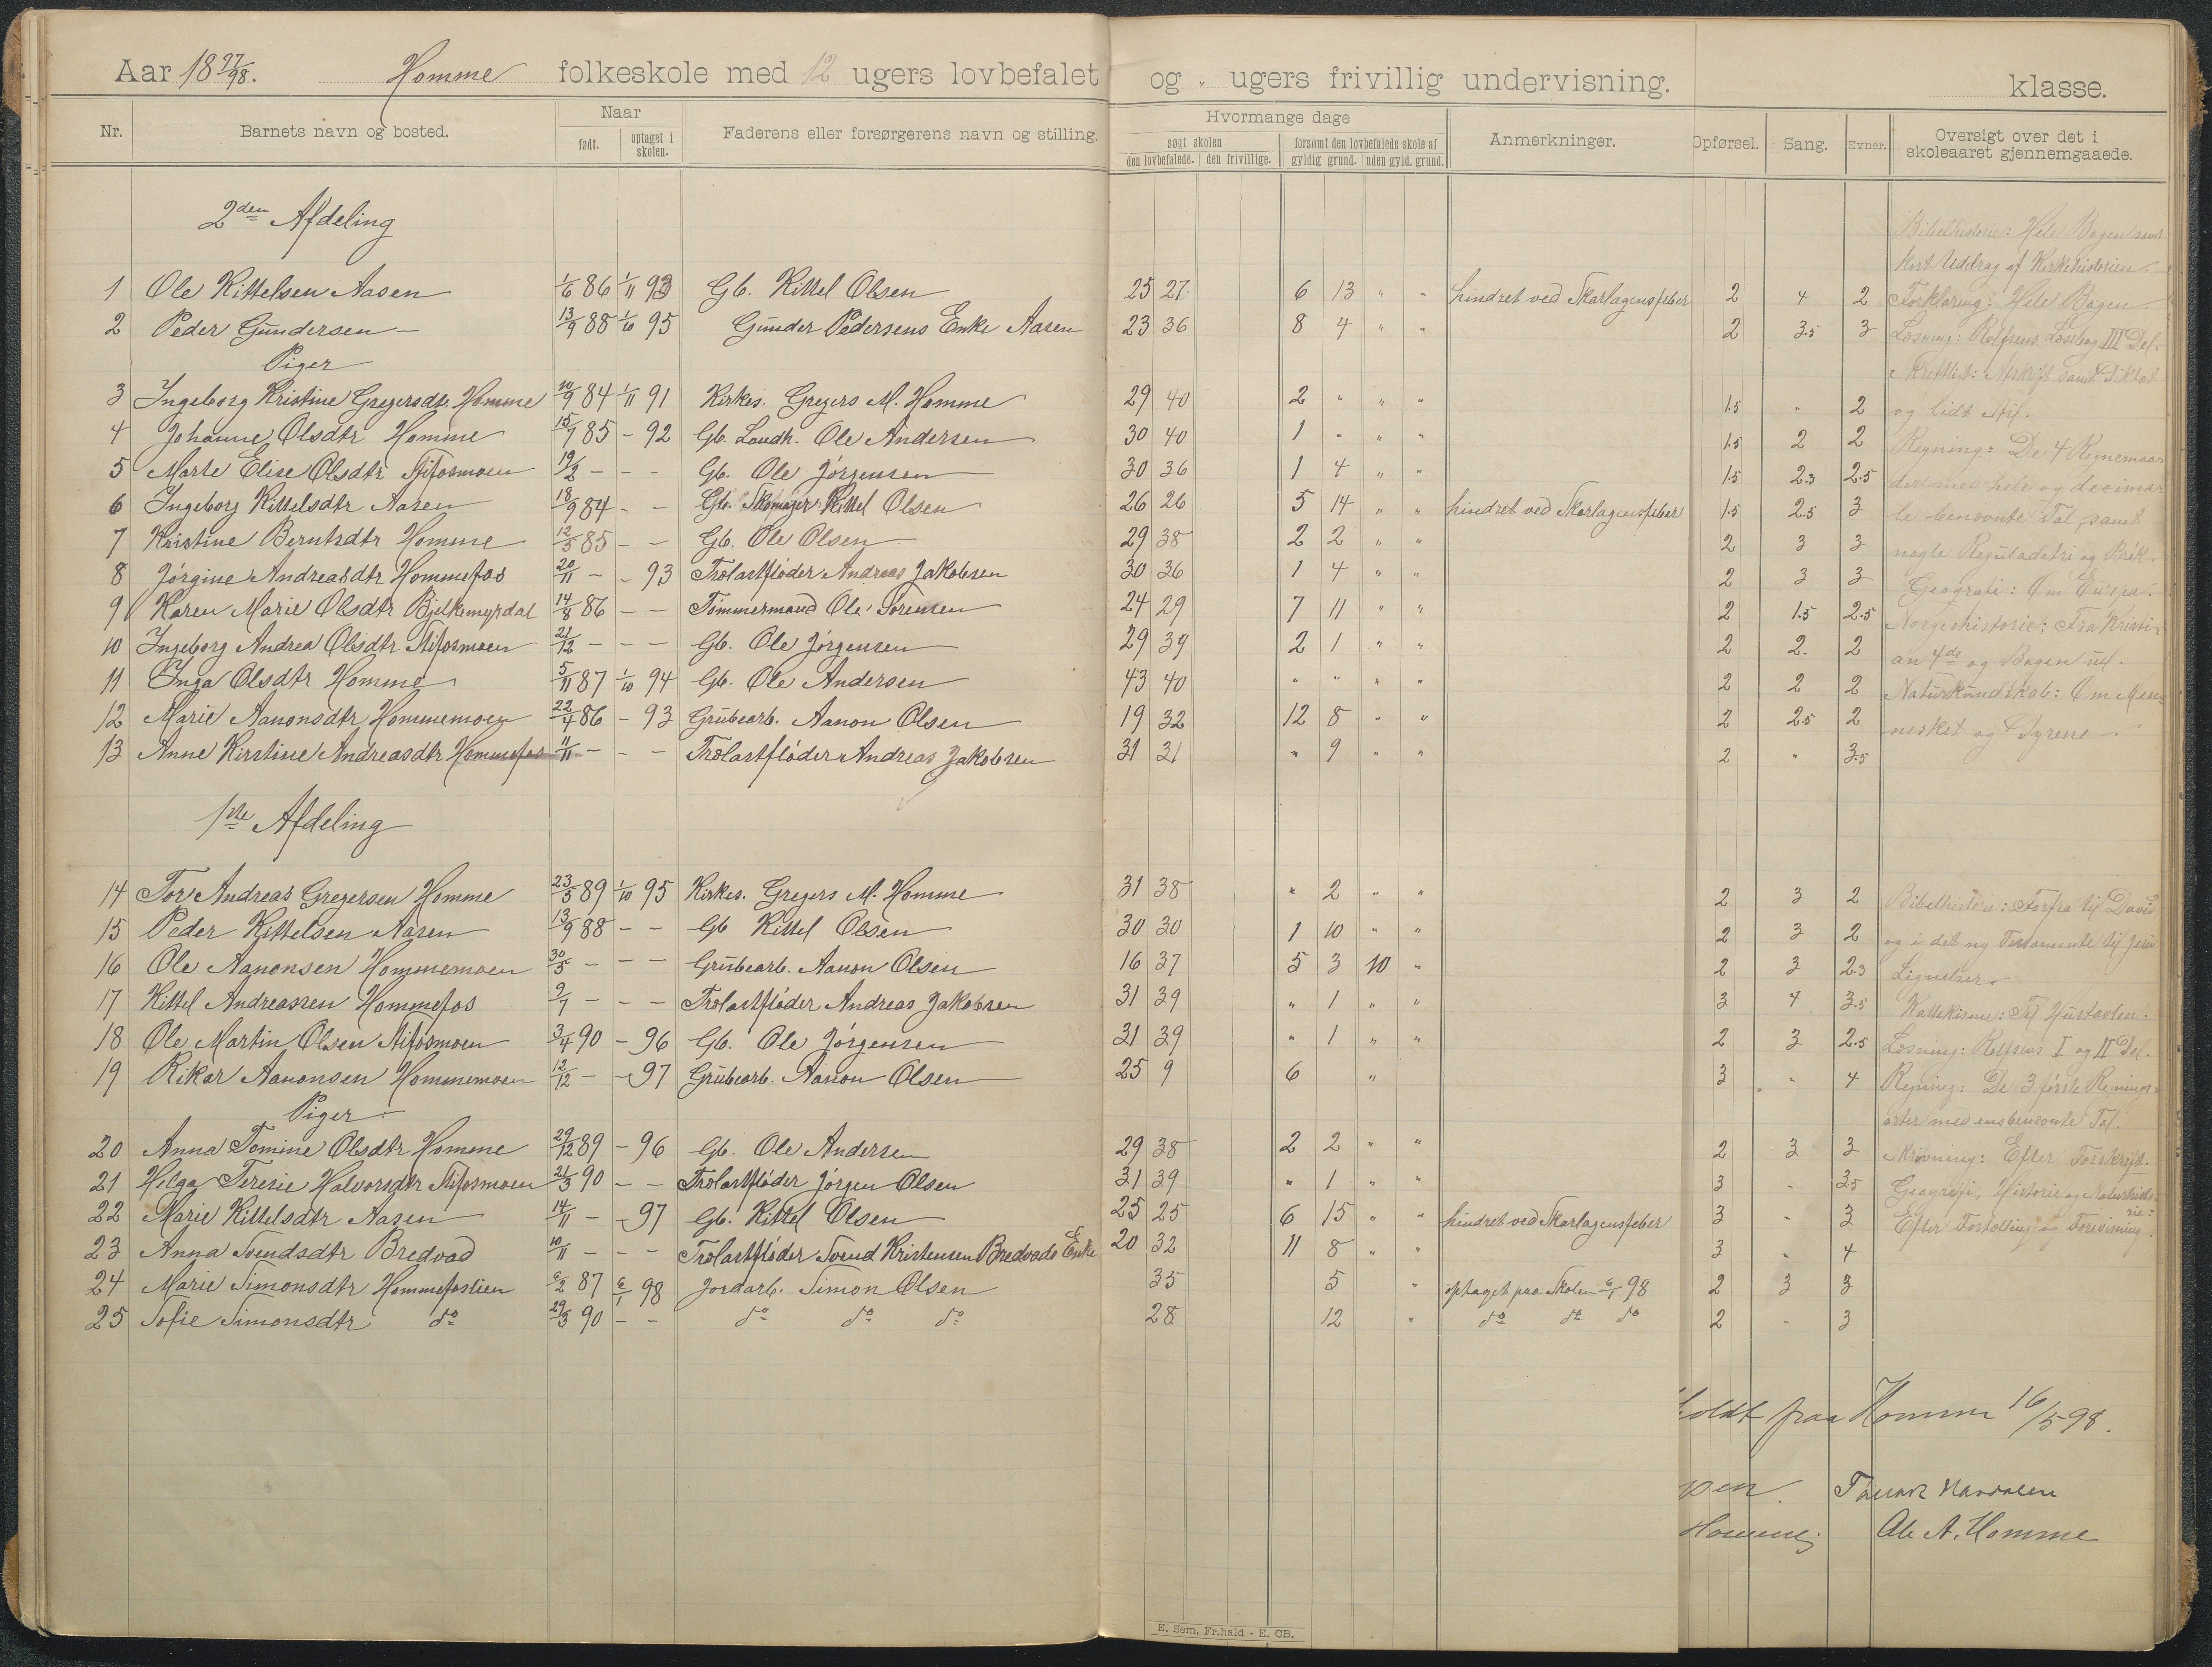 Aar 18 97/98. Homme folkeskole med 12 ugers lovbefalet og " ugers frivillig undervisning. klasse.
Nr. Barnets navn og bosted. Naar født. optaget i skolen. Faderens eller forsørgerens navn og stilling. Hvormange dage søgt skolen den lovbefalede. den frivillige. forsømt den lovbefalede skole af gyldig grund. uden gyld. grund. Anmerkninger. Opførsel. Sang. Evner. Oversigt over det i skoleaaret gjennemgaaede.
2den Afdeling
Bibelhistorie: Hele Bogen samt
kort Uddrag af Kirkehistorien.
1 Ole Kittelsen Aasen 1/6 86 1/11 93 Gb. Kittel Olsen 25 27 6 13 " " hindret ved Skarlagensfeber 2 4 2 Forklaring: Hele Bogen.
2 Peder Gundersen — 13/9 88 1/10 95 Gunder Pedersens Enke Aasen 23 36 8 4 " " 2 3.5 3 Læsning: Rolfsens Læsebog III Del.
Piger
Skriftligt: Afskrift samt Diktat
3 Ingeborg Kristine Gregersdtr. Homme 10/9 84 1/11 91 Kirkes. Gregers M. Homme 29 40 2 " " " 1.5 " 2 og lidt Stil.
4 Johanne Olsdtr Homme 15/7 85 - 92 Gb. Landh. Ole Andersen 30 40 1 " " " 1.5 2 2 Regning: De 4 Regnemaa-
5 Marte Elise Olsdtr Stifosmoen 19/2 - - - Gb. Ole Jørgensen 30 36 1 4 " " 1.5 2.3 2.5 der med hele og decima-
6 Ingeborg Kittelsdtr Aasen 18/9 84 - - Gb. Skomager Kittel Olsen 26 26 5 14 " " hindret ved Skarlagensfeber 1.5 2.5 3 le benævnte Tal samt
7 Kristine Berntsdtr Homme 12/5 85 - - Gb. Ole Olsen 29 38 2 2 " " 2 3 3 nogle Reguladetri og Brøk.
8 Jørgine Andreasdtr Hommefos 20/11 - - 93 Trælastfløder Andreas Jakobsen 30 36 1 4 " " 2 3 3 Geografi: Om Europa.
9 Karen Marie Olsdtr Bjelkemyrdal 14/8 86 - - Tømmermand Ole Sørensen 24 29 7 11 " " 2 1.5 2.5 Norgeshistorie: Fra Kristi-
10 Ingeborg Andrea Olsdtr. Stifosmoen 21/12 - - - Gb. Ole Jørgensen 29 39 2 1 " " 2 2. 2 an 4de og Bogen ud.
11 Inga Olsdtr Homme 5/11 87 1/10 94 Gb. Ole Andersen 43 40 " " " " 2 2 2 Naturkundskab: Om Men-
12 Marie Aanonsdtr Hommemoen 22/4 86 - 93 Grubearb. Aanon Olsen 19 32 12 8 " " 2 2.5 2 nesket og Dyrene.
13 Anne Kirstine Andreasdtr Hommefos 11/11 - - - Trælastfløder Andreas Jakobsen 31 31 " 9 " " 2 " 3.5
1ste Afdeling
14 Tor Andreas Gregersen Homme 23/5 89 1/10 95 Kirkes. Gregers M. Homme 31 38 " 2 " " 2 3 2 Bibelhistorie: Forfra til David
15 Peder Kittelsen Aasen 13/9 88 - - Gb Kittel Olsen 30 30 1 10 " " 2 3 2 og i det ny Testamente til Jesu
16 Ole Aanonsen Hommemoen 30/5 - - - Grubearb. Aanon Olsen 16 37 5 3 10 " 2 3 2.3 Lignelser.
17 Kittel Andreassen Hommefos 9/7 - - - Trælastfløder Andreas Jakobsen 31 39 " 1 " " 3 4 3.5 Katekisme: Til Hustavlen.
18 Ole Martin Olsen Stifosmoen 3/4 90 - 96 Gb. Ole Jørgensen 31 39 " 1 " " 2 3 2.5 Læsning: Rolfsens I og II Del.
19 Rikar Aanonsen Hommemoen 12/12 - - 97 Grubearb. Aanon Olsen 25 9 6 " 3 " 4 Regning: De 3 første Regnings-
Piger
arter med ensbenævnte Tal.
20 Anna Tomine Olsdtr Homme 29/12 89 - 96 Gb. Ole Andersen 29 38 2 2 " " 2 3 3 Skrivning: Efter Forskrift.
21 Helga Teresie Halvorsdtr Stifosmoen 21/3 90 - - Trælastfløder Jørgen Olsen 31 39 " 1 " " 3 - 3.5 Geografi, Historie og Naturhisto-
rie:
22 Marie Kittelsdtr Aasen 14/11 - - 97 Gb. Kittel Olsen 25 25 6 15 " " hindret ved Skarlagensfeber 3 " 3 Efter Fortælling og Forevisning.
23 Anna Svendsdtr Bredvad 10/11 - - - Trælastfløder Svend Kristensen Bredvads Enke 20 32 11 8 " " 3 " 4
24 Marie Simonsdtr Hommefoslien 6/2 87 6/1 98 Jordarb. Simon Olsen 35 5 " optaget paa Skolen 6/1 98 2 3 3
25 Sofie Simonsdtr do 29/3 90 - - do do do 28 12 " do do do 2 - 3
holdt paa Homme 16/5 98.
Homme. Ole A. Homme
E. Sem, Fr.hald - E. CB.